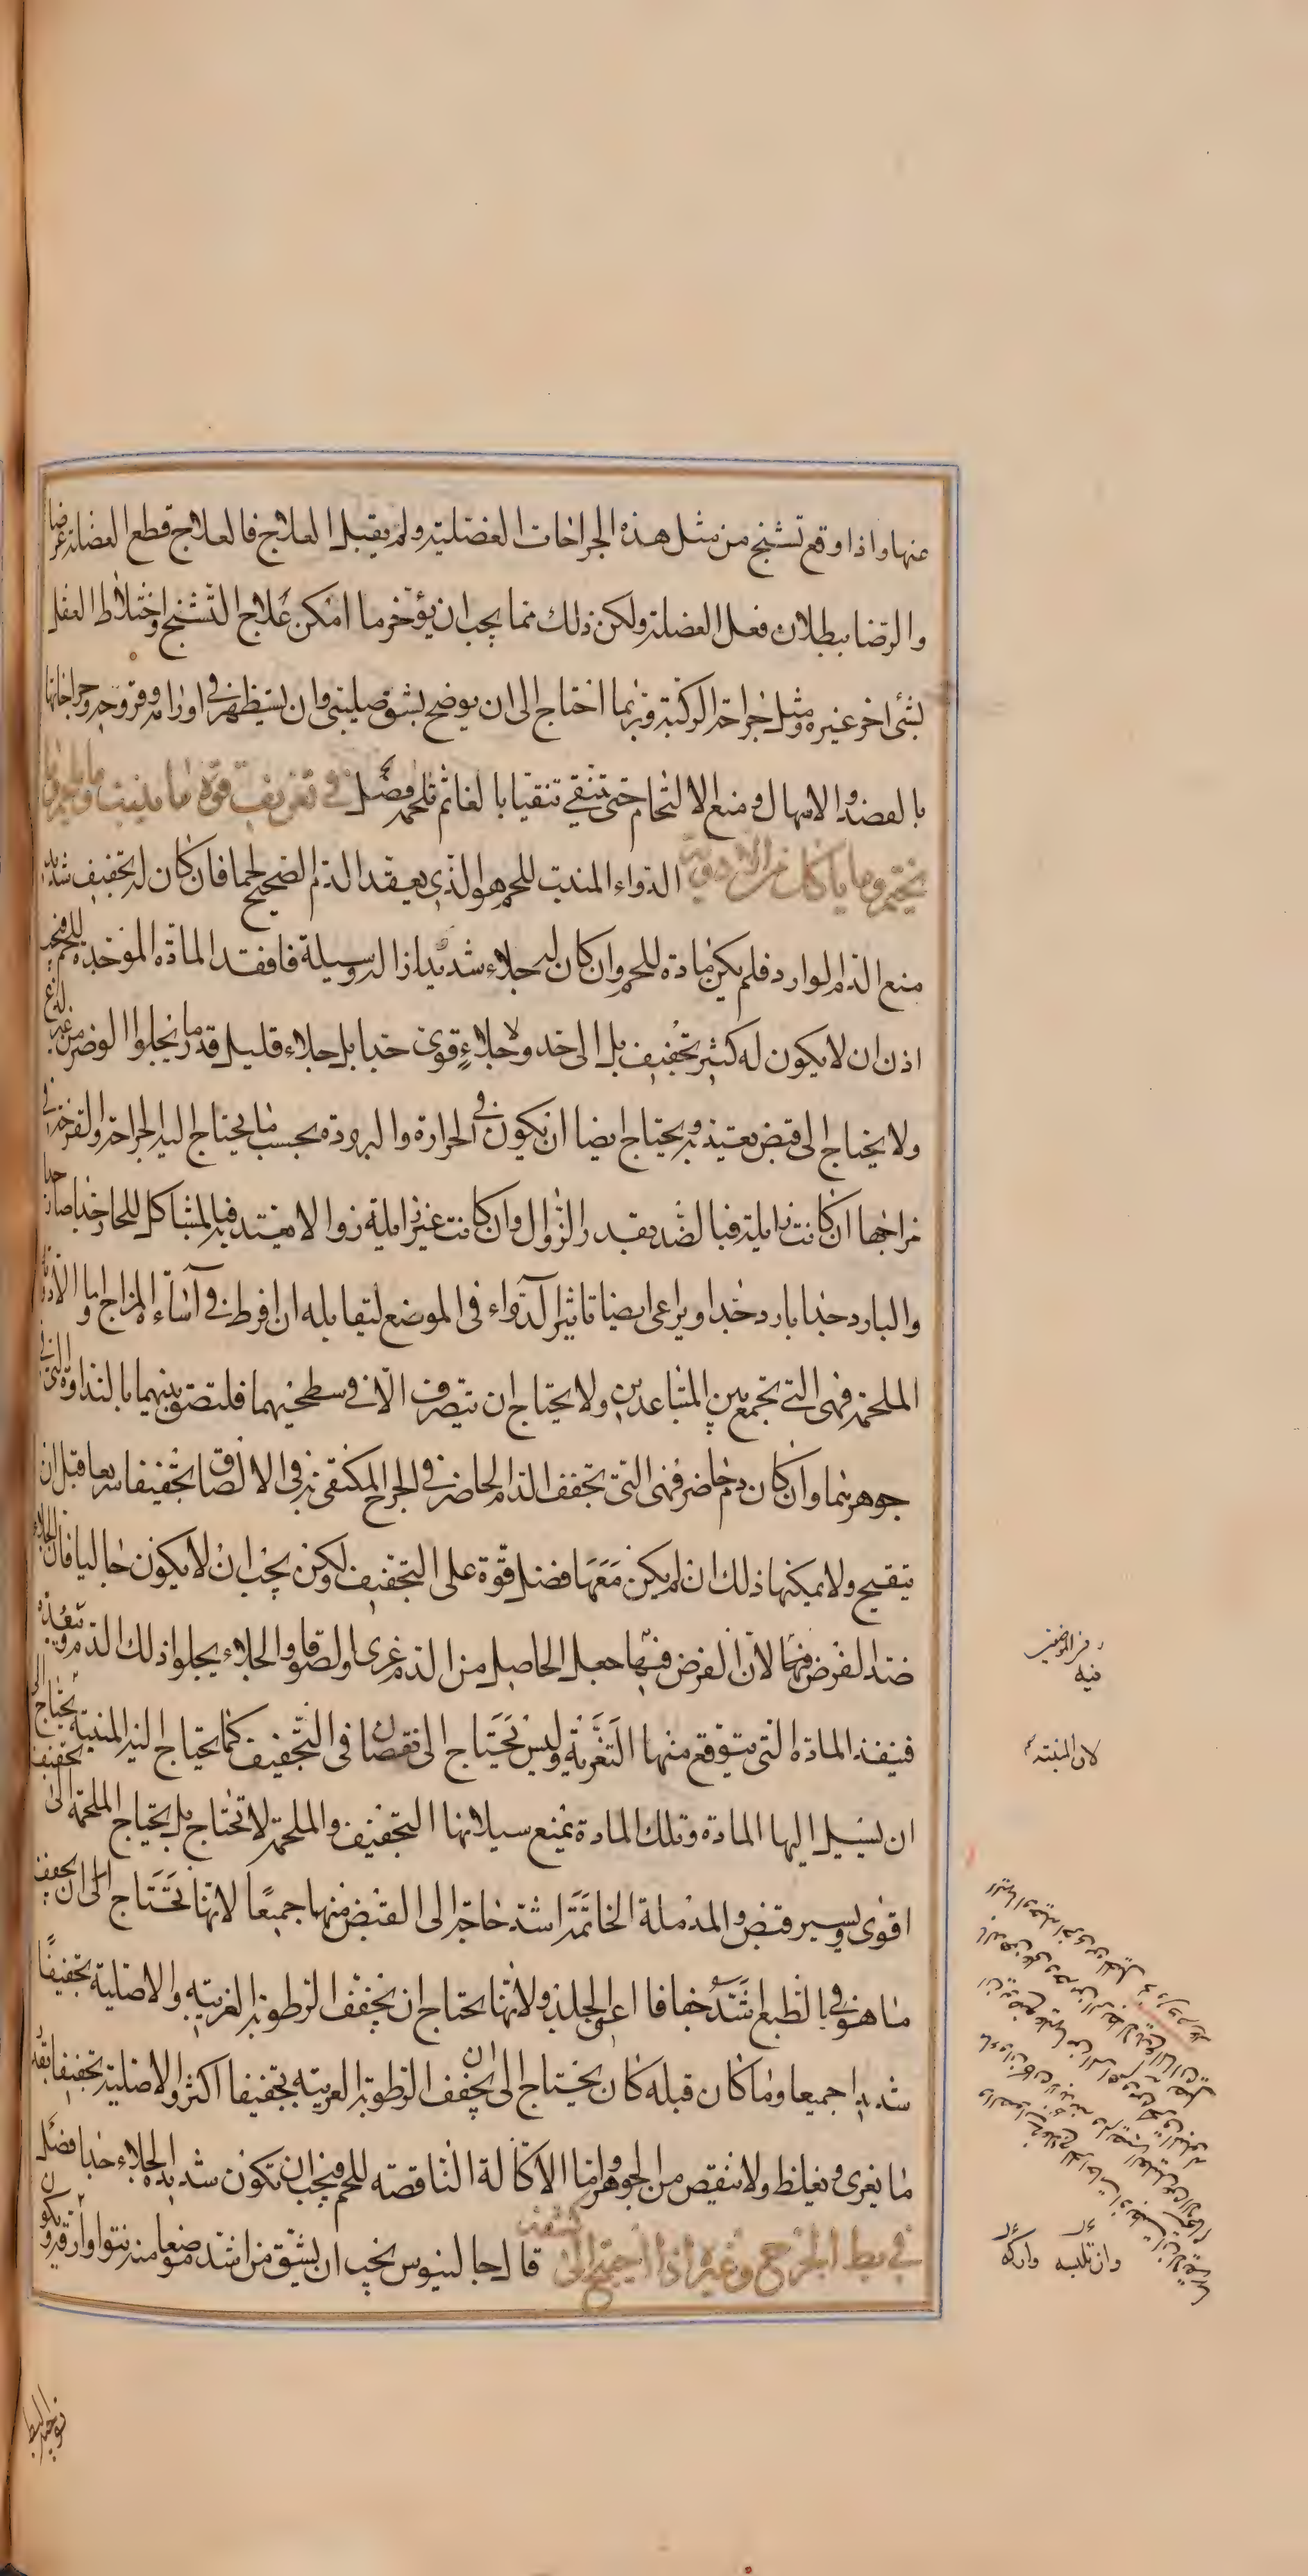 عنها واذا وقع تشنج من مثل هذه الجراحات العضلية ولم يقبل العلاج فالعلاج قطع العضلة عرضا
والرضا ببطلان فعل العضلة ولكن ذلك مما يجب ان يؤخر ما امكن علاج التشنج واختلاط العقل
بشئ اخر غيره ومثل جراحة الركبة وربما احتاج الى ان يوضح بشق صليبى وان يستظهر فى اورامه وقروحه وجراحاتها
بالفصد والاسهال ومنع الالتحام حتى تنقى تنقيا بالغا ثم تلحم فصل فى تعريف قوة ما ينبت وما يلحم وما
يختم وما ياكل من الادوية الدواء المنبت للحم هو الذى يعقد الدم الصحيح لحما فان كان له تجفيف شديد
منع الدم الوارد فلم يكن مادة للحم وان كان له جلاء شديد ازاله وسيله فافقد المادة الموخذة للحم فيجب
اذن ان لا يكون له كثير تجفيف بل الى حد ولا جلاء قوى جدا بل جلاء قليل قدر ما يجلوا الوضر من غير لذع
ولا يحتاج الى قبض يعتد به ويحتاج ايضا ان يكون فى الحرارة والبرودة بحسب ما يحتاج اليه الجراحة والقرحة فى
مزاجها ان كانت زايلة فبالضد بقدر الزوال وان كانت غير زايلة زوالا يعتد به فبالمشاكل للحار جدا حارا
والبارد جدا بارد جدا ويراعى ايضا تاثير الدواء فى الموضع لتقابله ان افرط فى اساءة المزاج واما الادوية
الملحمة فهى التى تجمع بين المتباعدين ولا يحتاج ان يتصرف الا فى سطحيهما فلتصق بينهما بالنداوة التى فى
جوهرهما وان كان دم حاضر فهى التى تجفف الدم الحاضر فى الجرح المكتفى به فى الالصاق تجفيفا سريعا قبل ان
يتقيح ولا يمكنها ذلك ان لم يكن معها فضل قوة على التجفيف ولكن يجب ان لا يكون جاليا فان الجلاء
ضد الغرض فيها لان الغرض فيها جعل الحاصل من الدم غرى ولصاقا والجلاء يجلوا ذلك الدم ويبعده
فينفذ المادة التى يتوقع منها التغرية وليس تحتاج الى نقصان فى التجفيف كما يحتاج اليه المنبتة يحتاج الى
ان يسيل اليها المادة وتلك المادة يمنع سيلانها التجفيف والملحمة لا تحتاج بل يحتاج الملحمة الى تجفيف
اقوى ويسير قبض والمدملة الخاتمة اشد حاجة الى القبض منهما جميعا لانها تحتاج الى ان يجفف
ما هو فى الطبع اشد جفافا اعنى الجلد ولانها يحتاج ان يجفف الرطوبة الغريبة والاصلية تجفيفا
شديدا جميعا وما كان قبله كان يحتاج الى ان يجفف الرطوبة الغريبة تجفيفا اكثر والاصلية تجفيفا بقدر
ما يغرى ويغلظ ولا ينقص من الجوهر واما الاكالة الناقصة للحم فيجب ان تكون شديدة الجلاء جدا فصل
فى بط الجرح وغيره اذا احتيج الى كشفه قال جالينوس يجب ان يشق من اشد موضعا منه نتوا وارقه ويكون
لان المنبتة
فيه
توجه البط